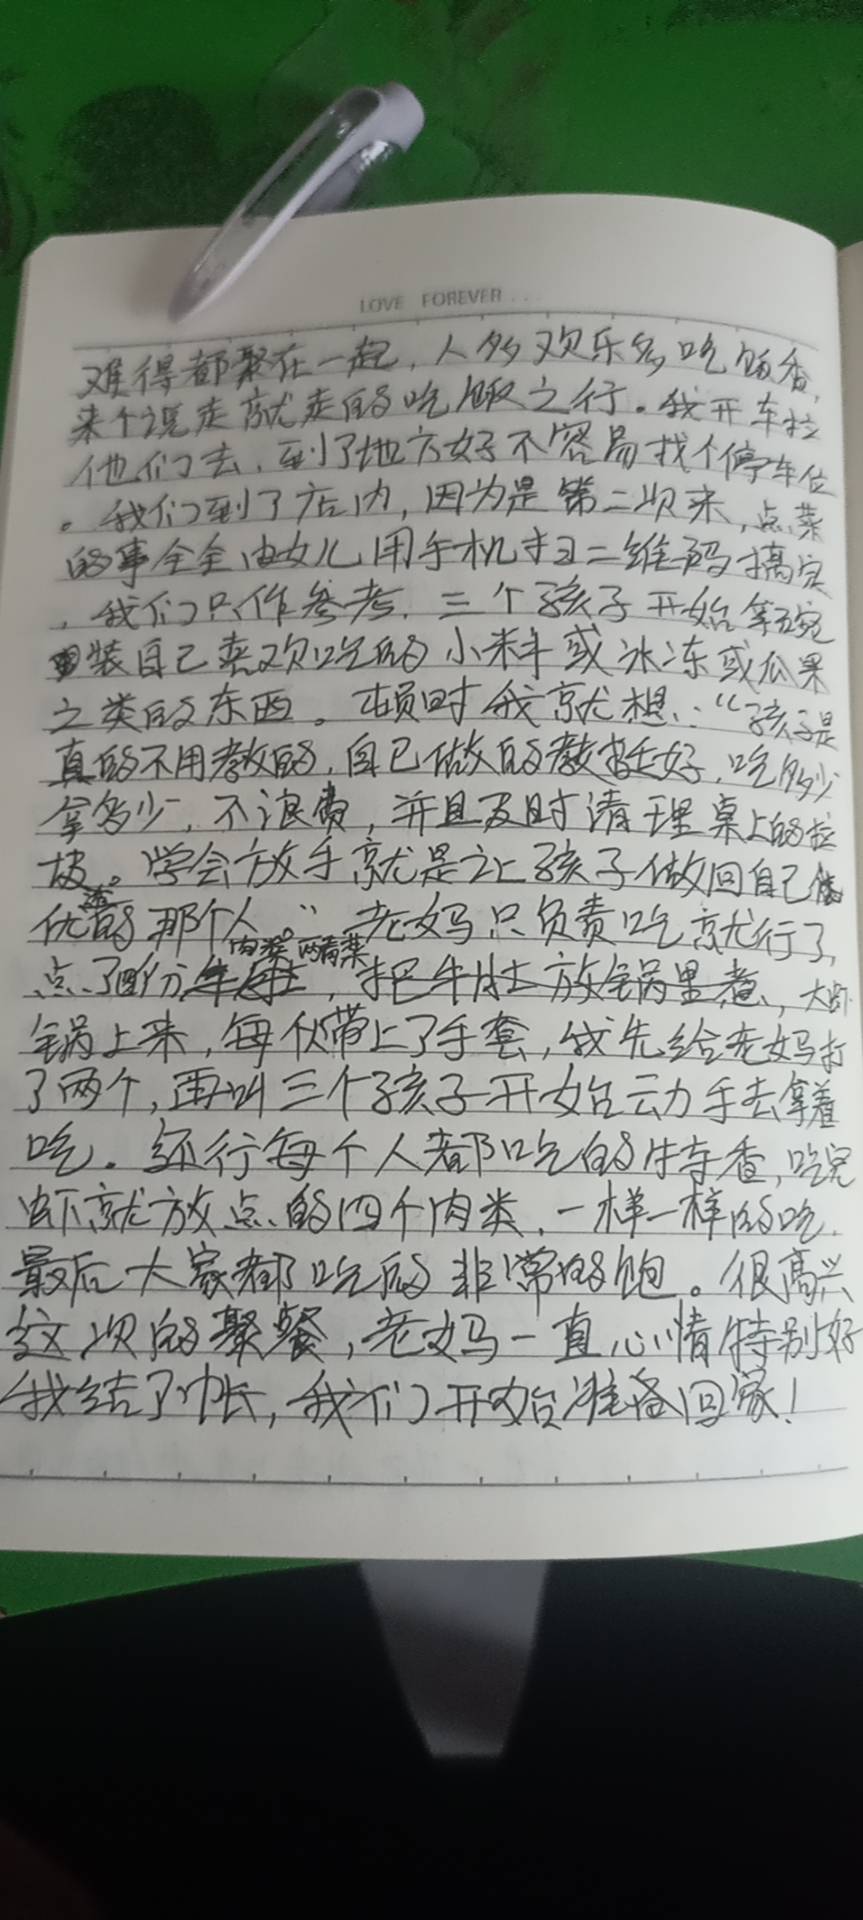 LOVE FOREVER...
难得都聚在一起，人多欢乐多吃饭香，
来个说走就走的吃饭之行。我开车拉
他们去，到了地方好不容易找个停车位
。我们到了店内，因为是第二次来，点菜
的事全全由女儿用手机扫二维码搞定
，我们只作参考，三个孩子开始拿碗
装自己喜欢吃的小料或冰冻或瓜果
之类的东西。顿时我就想："孩子是
真的不用教的，自己做的教好，吃多少
拿多少，不浪费，并且及时清理桌上的垃
圾。学会放手就是让孩子做回自己
优秀的那个人。"老妈只负责吃就行了，
肉菜 两青菜
点了四份，把牛肚放锅里煮，大虾
锅上来，每伙带上了手套，我先给老妈打
了两个，再叫三个孩子开始动手去拿着
吃。还行每个人都吃的特香，吃完
虾就放点的四个肉类，一样一样的吃，
最后大家都吃的非常的饱。很高兴
这次的聚餐，老妈一直心情特别好
我结了帐，我们开始准备回家！